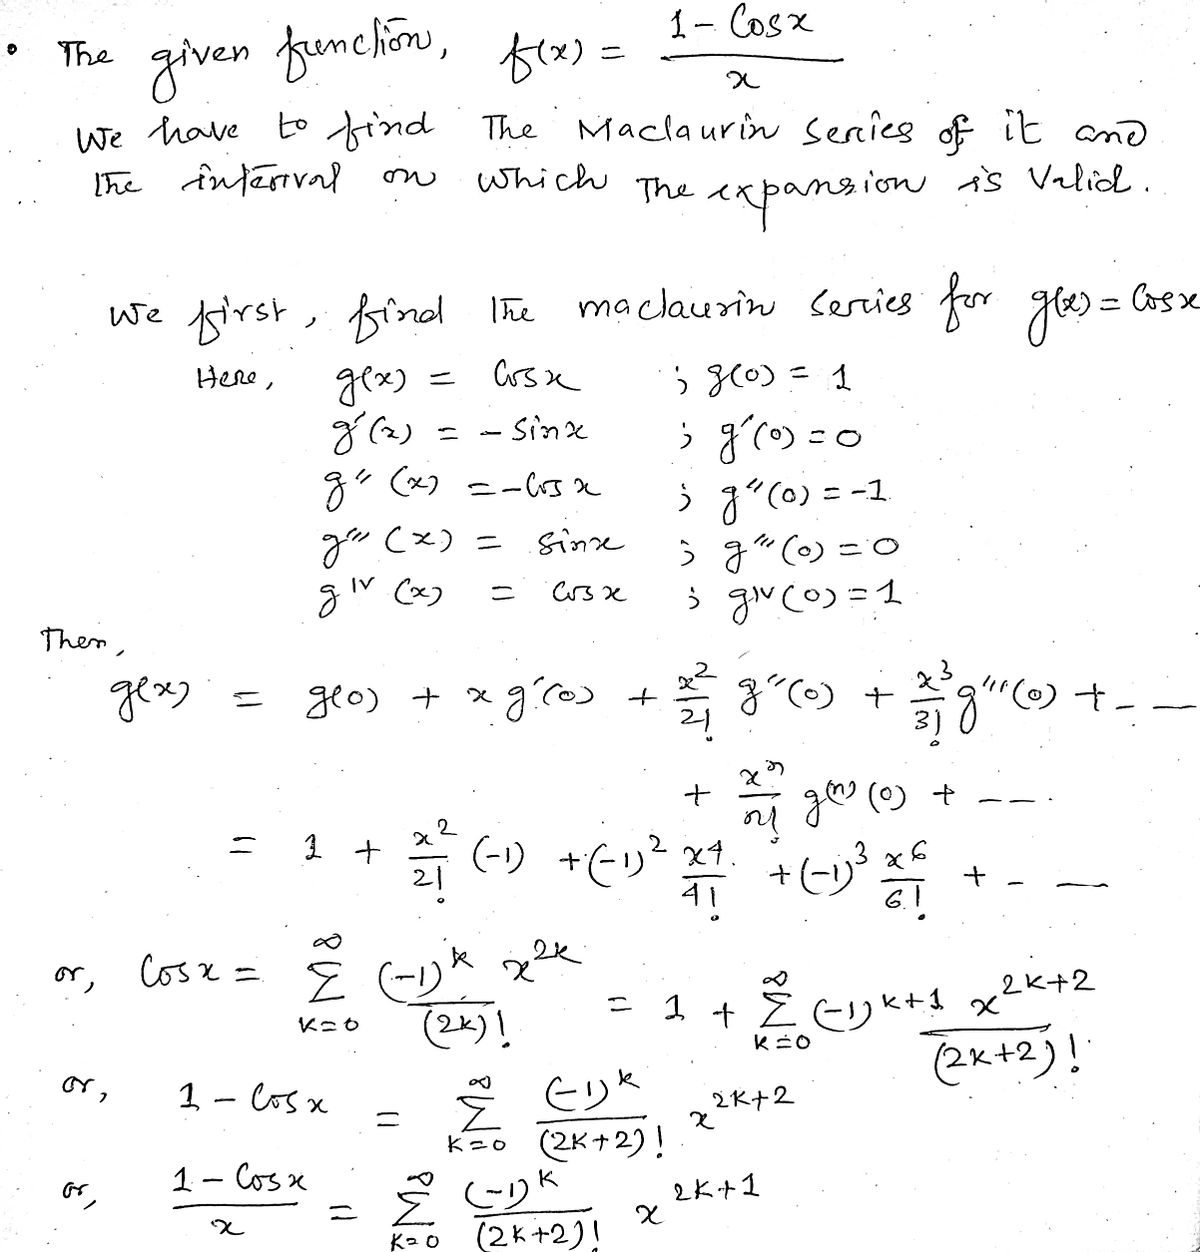 • The given function, f(x) = (1 - Cosx)/x
We have to find The Maclaurin series of it and
The interval on which The expansion is Valid.
We first, find The maclaurin series for g(x) = Cosx
Here, g(x) = Cosx ; g(0) = 1
g'(x) = - Sinx ; g'(0) = 0
g''(x) = - Cosx ; g''(0) = -1
g'''(x) = Sinx ; g'''(0) = 0
g^IV(x) = Cosx ; g^IV(0) = 1
Then,
g(x) = g(0) + x g'(0) + x^2/2! g''(0) + x^3/3! g'''(0) + - -
+ x^n/n! g^(n)(0) + - - -
= 1 + x^2/2! (-1) + (-1)^2 x^4/4! + (-1)^3 x^6/6! + - -
or, Cosx = ∑_{k=0}^{∞} (-1)^k x^{2k}/(2k)! = 1 + ∑_{k=0}^{∞} (-1)^{k+1} x^{2k+2}/(2k+2)!
or, 1 - Cosx = ∑_{k=0}^{∞} (-1)^k/(2k+2)! x^{2k+2}
or, (1 - Cosx)/x = ∑_{k=0}^{∞} (-1)^k/(2k+2)! x^{2k+1}